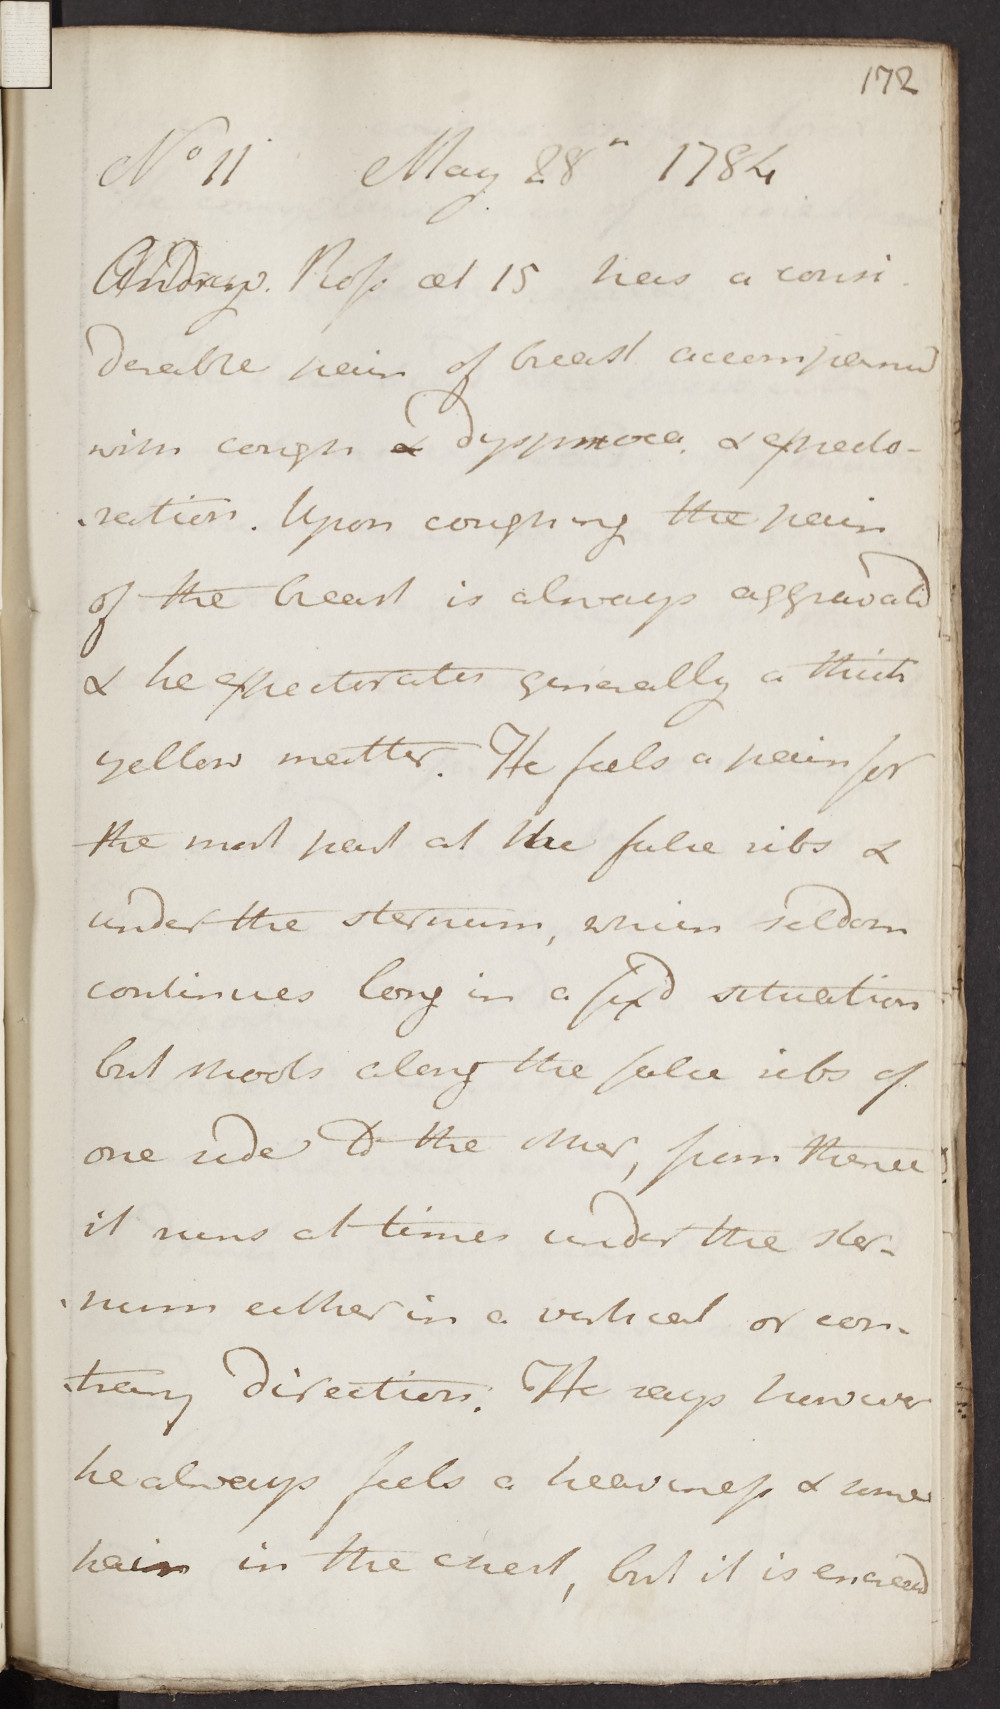 172
No 11 May 28th 1784
Andrew Ross æt 15 has a consi
derable pain of breast accompanied
with cough & dyspnoea & expecto-
ration. Upon coughing the pain
of the breast is always aggravated
& he expectorates generally a thick
yellow matter. He feels a pain for
the most part at the false ribs &
under the sternum, which seldom
continues long in a fixd situation
but shoots along the false ribs of
one side to the other, from thence
it runs at times under the ster-
num either in a vertical or con-
trary direction. He says however
he always feels a heaviness & some
pain in the chest, but it is encreasd